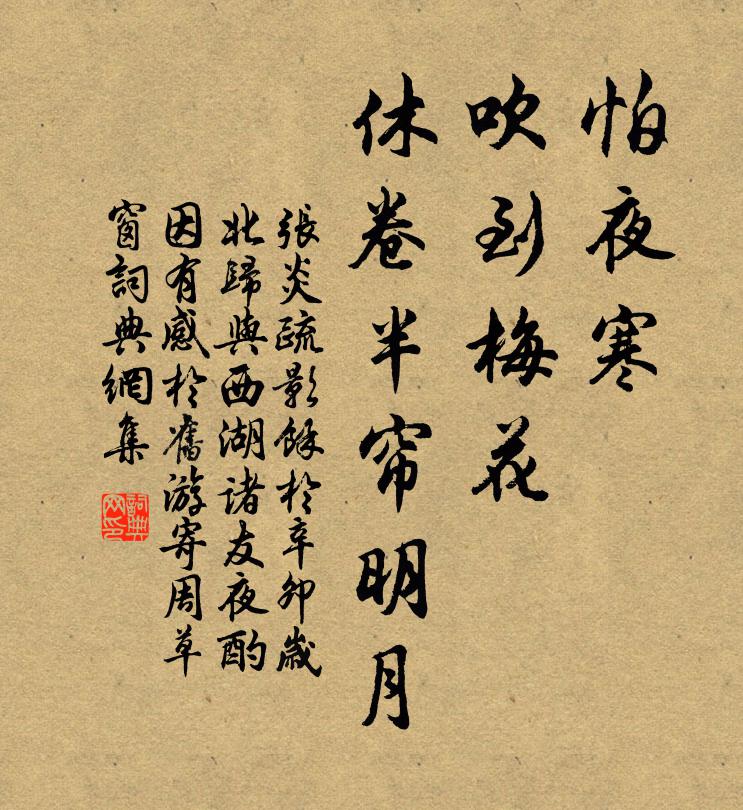 怕夜寒
吹到梅花
休卷半帘明月
張炎疏影餘於辛卯歲
北歸與西湖諸友夜酌
因有感於舊游寄周草
窗詞典網集
詞典
网印